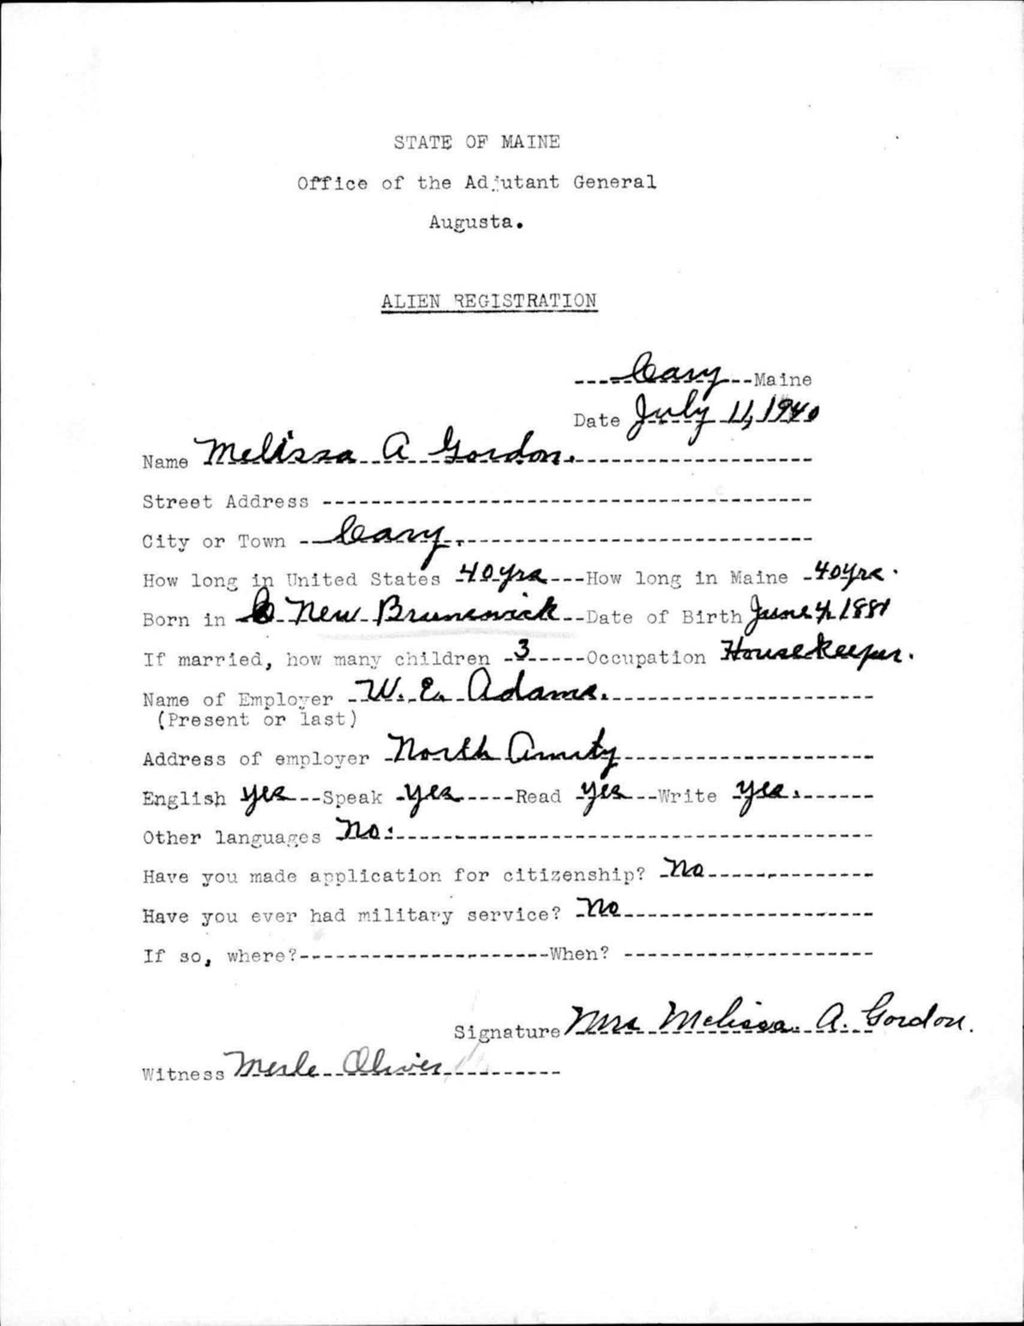 STATE OF MAINE
Office of the Adjutant General
Augusta.
ALIEN REGISTRATION
Cary Maine
Date July 11, 1940
Name Melissa A Gordon.
Street Address
City or Town Cary.
How long in United States 40 yrs How long in Maine 40 yrs.
Born in New Brunswick Date of Birth June 4, 1881
If married, how many children 3 Occupation Housekeeper.
Name of Employer W. E. Adams.
(Present or last)
Address of employer North Amity
English yes Speak yes Read yes Write yes.
Other languages No.
Have you made application for citizenship? No
Have you ever had military service? No
If so, where? When?
Signature Mrs Melissa. A. Gordon.
Witness Merle Oliver